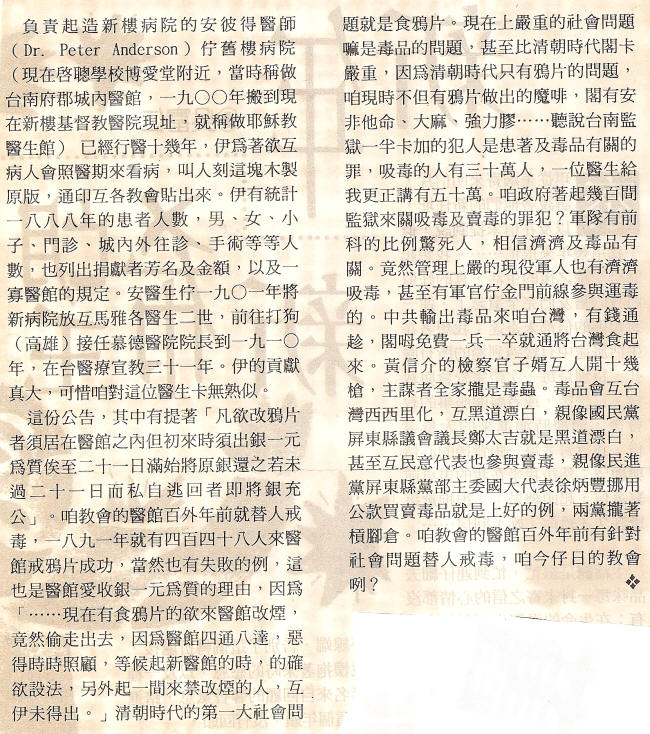 負責起造新樓病院的安彼得醫師
（Dr. Peter Anderson）佇舊樓病院
（現在啓聰學校博愛堂附近，當時稱做
台南府郡城內醫館，一九〇〇年搬到現
在新樓基督教醫院現址，就稱做耶穌教
醫生館） 已經行醫十幾年，伊爲著欲互
病人會照醫期來看病，叫人刻這塊木製
原版，通印互各教會貼出來。伊有統計
一八八八年的患者人數，男、女、小
子、門診、城內外往診、手術等等人
數，也列出捐獻者芳名及金額，以及一
寡醫館的規定。安醫生佇一九〇一年將
新病院放互馬雅各醫生二世，前往打狗
（高雄）接任慕德醫院院長到一九一〇
年，在台醫療宣教三十一年。伊的貢獻
真大，可惜咱對這位醫生卡無熟似。
這份公告，其中有提著「凡欲改鴉片
者須居在醫館之內但初來時須出銀一元
爲質俟至二十一日滿始將原銀還之若未
過二十一日而私自逃回者即將銀充
公」。咱教會的醫館百外年前就替人戒
毒，一八九一年就有四百四十八人來醫
館戒鴉片成功，當然也有失敗的例，這
也是醫館愛收銀一元爲質的理由，因爲
「……現在有食鴉片的欲來醫館改煙，
竟然偷走出去，因爲醫館四通八達，惡
得時時照顧，等候起新醫館的時，的確
欲設法，另外起一間來禁改煙的人，互
伊未得出。」清朝時代的第一大社會問
題就是食鴉片。現在上嚴重的社會問題
嘛是毒品的問題，甚至比清朝時代閣卡
嚴重，因爲清朝時代只有鴉片的問題，
咱現時不但有鴉片做出的嗎啡，閣有安
非他命、大麻、強力膠……聽說台南監
獄一半卡加的犯人是患著及毒品有關的
罪，吸毒的人有三十萬人，一位醫生給
我更正講有五十萬。咱政府著起幾百間
監獄來關吸毒及賣毒的罪犯？軍隊有前
科的比例驚死人，相信濟濟及毒品有
關。竟然管理上嚴的現役軍人也有濟濟
吸毒，甚至有軍官佇金門前線參與運毒
的。中共輸出毒品來咱台灣，有錢通
趁，閣呣免費一兵一卒就通將台灣食起
來。黃信介的檢察官子婿互人開十幾
槍，主謀者全家攏是毒蟲。毒品會互台
灣西西里化，互黑道漂白，親像國民黨
屏東縣議會議長鄭太吉就是黑道漂白，
甚至互民意代表也參與賣毒，親像民進
黨屏東縣黨部主委國大代表徐炳豐挪用
公款買賣毒品就是上好的例，兩黨攏著
槓腳倉。咱教會的醫館百外年前有針對
社會問題替人戒毒，咱今仔日的教會
咧？